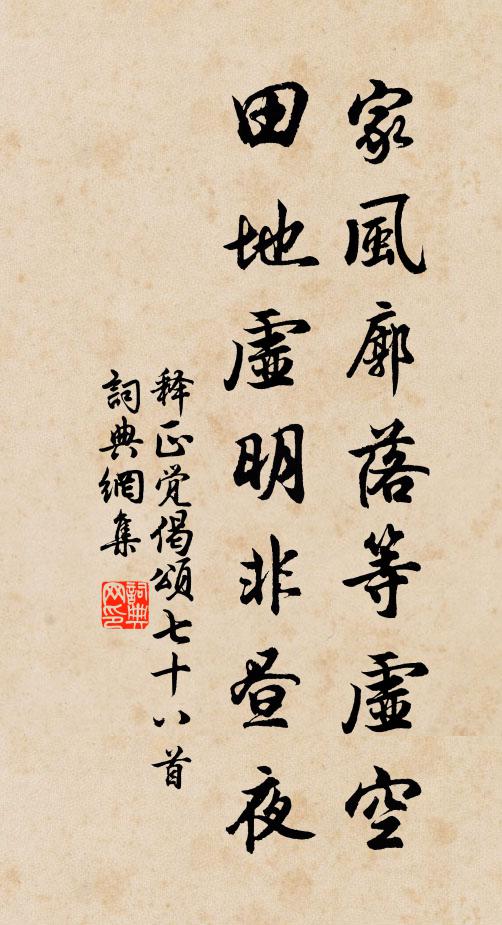 家風廓落等虛空
田地虛明非昼夜
释正觉偈頌七十八首
詞典網集
詞典
网印